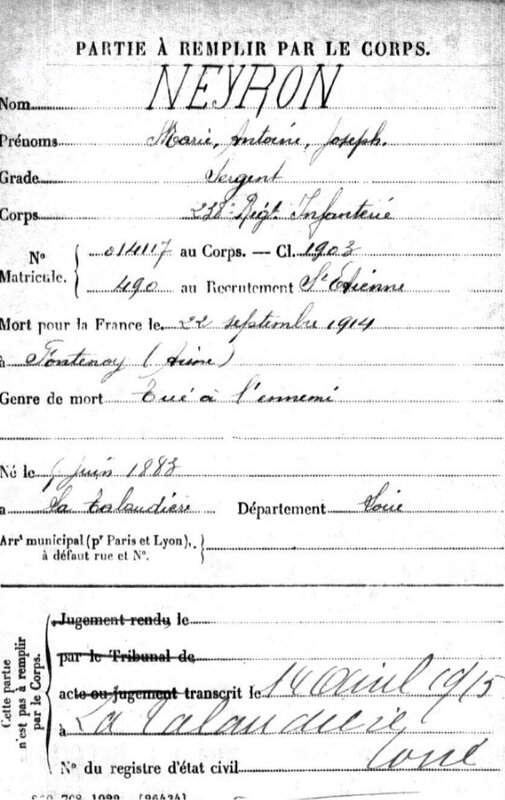 PARTIE À REMPLIR PAR LE CORPS.
Nom NEYRON
Prénoms Marie, Antoine, Joseph.
Grade Sergent
Corps 238e Régt Infanterie
No Matricule. 014117 au Corps. — Cl. 1903
490 au Recrutement St Etienne
Mort pour la France le 22 septembre 1914
à Fontenoy (Aisne)
Genre de mort Tué à l'ennemi
Né le Juin 1883
a La Talaudière Département Loire
Arrt municipal (pr Paris et Lyon),
à défaut rue et No.
Cette partie n'est pas à remplir par le Corps.
Jugement rendu le
par le Tribunal de
acte ou jugement transcrit le 14 Avril 1915
à La Talaudière
Loire
No du registre d'état civil